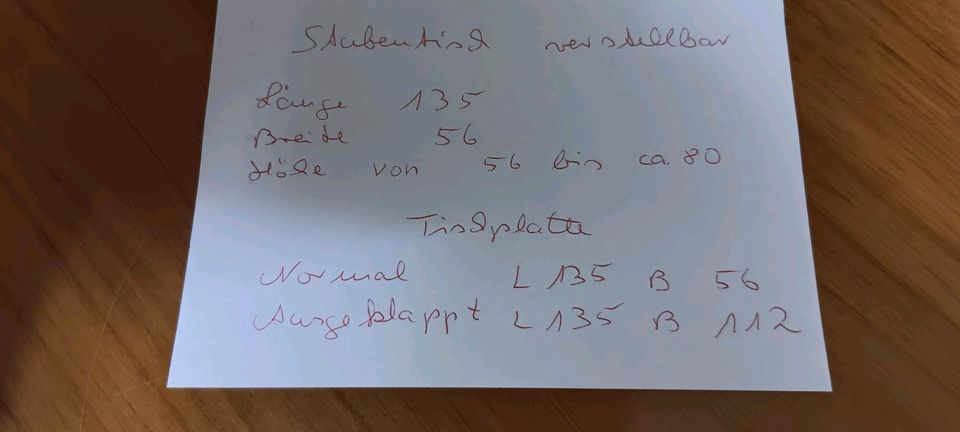 Stubentisch verstellbar
Länge 135
Breite 56
Höhe von 56 bis ca. 80
Tischplatte
Normal L 135 B 56
Ausgeklappt L 135 B 112